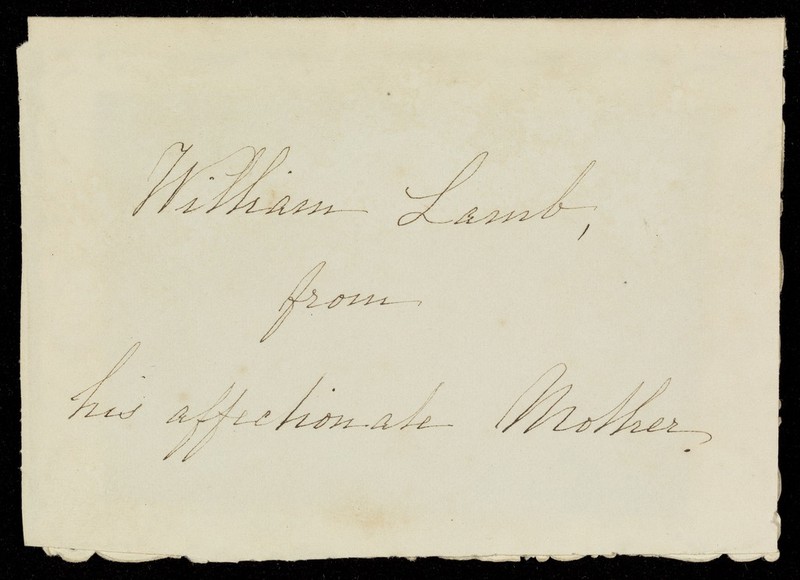 William Lamb,
from
his affectionate Mother.